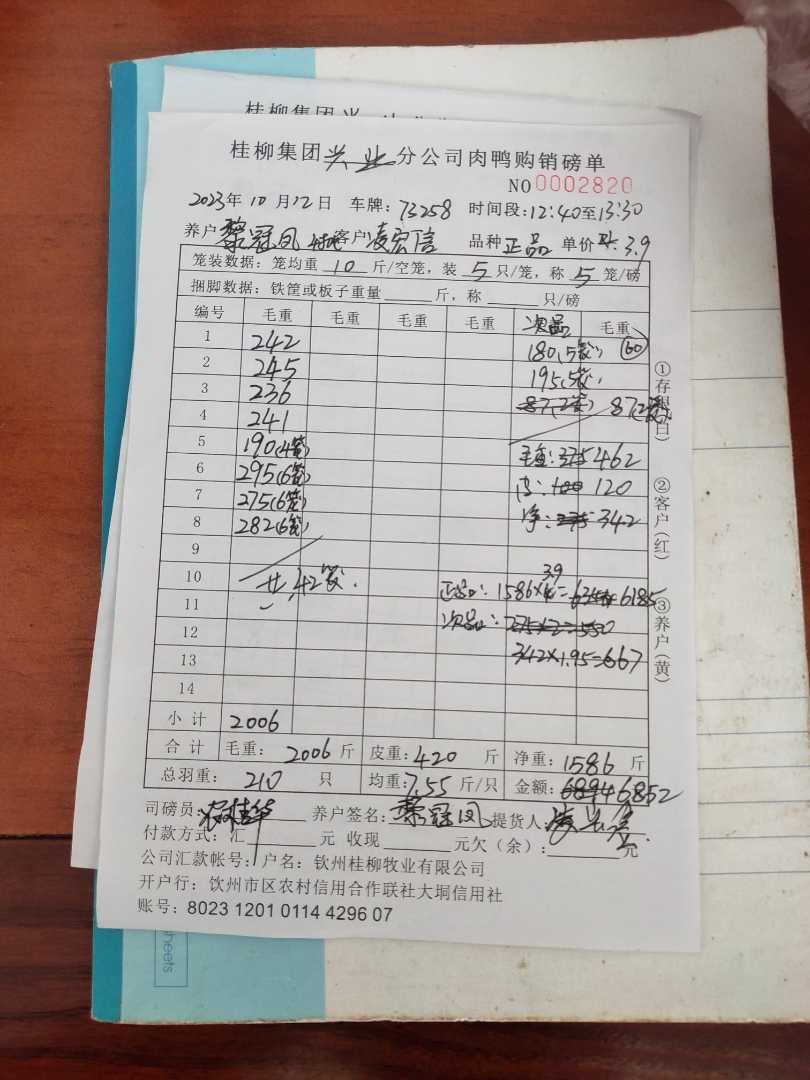 桂柳集团兴
桂柳集团兴业分公司肉鸭购销磅单
NO 0002820
2023年10月12日 车牌:73258 时间段:12:40至13:30
养户黎冠凤 客户凌宏信 品种正品 单价 3.9
笼装数据:笼均重 10 斤/空笼,装 5 只/笼,称 5 笼/磅
捆脚数据:铁筐或板子重量 斤,称 只/磅
编号 毛重 毛重 毛重 毛重 次品 毛重
1 242 180(5笼) 60
2 245 195(5笼)
3 236 87(2笼) 87(2笼)
4 241
5 190(4笼) 毛重:375 462
6 295(6笼) 皮:100 120
7 275(6笼) 净:275 342
8 282(6笼)
9
10 共42笼. 正品:1586×4= 6344 6185
3.9
11 次品:275×2=550
12 342×1.95=667
13
14
小计 2006
合计 毛重:2006斤 皮重:420 斤 净重:1586 斤
总羽重:210 只 均重:7.55斤/只 金额:6894 6852
司磅员: 养户签名:黎冠凤 提货人:
付款方式:汇 元 收现 元欠(余): 元
公司汇款帐号:户名:钦州桂柳牧业有限公司
开户行:钦州市区农村信用合作联社大垌信用社
账号:8023 1201 0114 4296 07
①存根(白)
②客户(红)
③养户(黄)
sheets